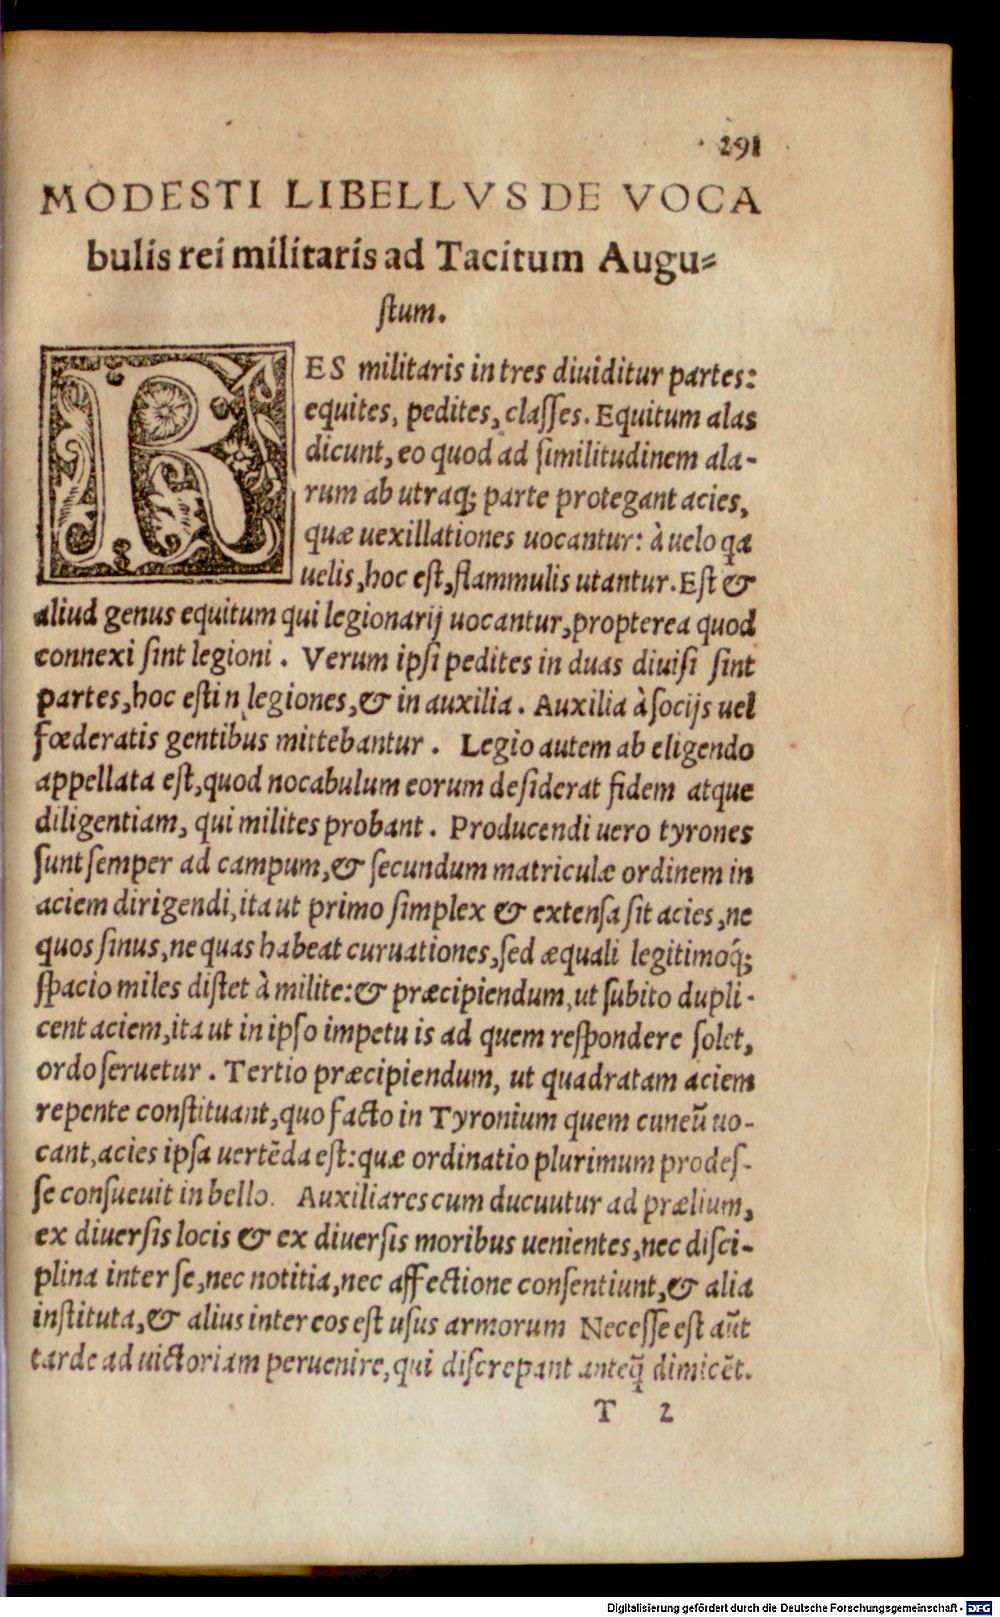 291
MODESTI LIBELLVS DE VOCA
bulis rei militaris ad Tacitum Augu⸗
ſtum.
RES militaris in tres diuiditur partes:
equites, pedites, claſſes. Equitum alas
dicunt, eo quod ad ſimilitudinem ala-
rum ab utraq; parte protegant acies,
quæ uexillationes uocantur: à uelo qa
uelis, hoc eſt, flammulis utantur. Eſt &
aliud genus equitum qui legionarij uocantur, propterea quod
connexi ſint legioni. Verum ipſi pedites in duas diuiſi ſint
partes, hoc eſt in legiones, & in auxilia. Auxilia à ſocijs uel
fœderatis gentibus mittebantur. Legio autem ab eligendo
appellata eſt, quod nocabulum eorum deſiderat fidem atque
diligentiam, qui milites probant. Producendi uero tyrones
ſunt ſemper ad campum, & ſecundum matriculæ ordinem in
aciem dirigendi, ita ut primo ſimplex & extenſa ſit acies, ne
quos ſinus, ne quas habeat curuationes, ſed æquali legitimoq́;
ſpacio miles diſtet à milite: & præcipiendum, ut ſubito dupli-
cent aciem, ita ut in ipſo impetu is ad quem reſpondere ſolet,
ordo ſeruetur. Tertio præcipiendum, ut quadratam aciem
repente conſtituant, quo facto in Tyronium quem cuneũ uo-
cant, acies ipſa uertẽda eſt: quæ ordinatio plurimum prodeſ-
ſe conſueuit in bello. Auxiliares cum ducuutur ad prælium,
ex diuerſis locis & ex diuerſis moribus uenientes, nec diſci-
plina inter ſe, nec notitia, nec affectione conſentiunt, & alia
inſtituta, & alius inter eos eſt uſus armorum Neceſſe eſt aũt
tarde ad uictoriam peruenire, qui diſcrepant anteq̃ dimicẽt.
T 2
Digitalisierung gefördert durch die Deutsche Forschungsgemeinschaft - DFG